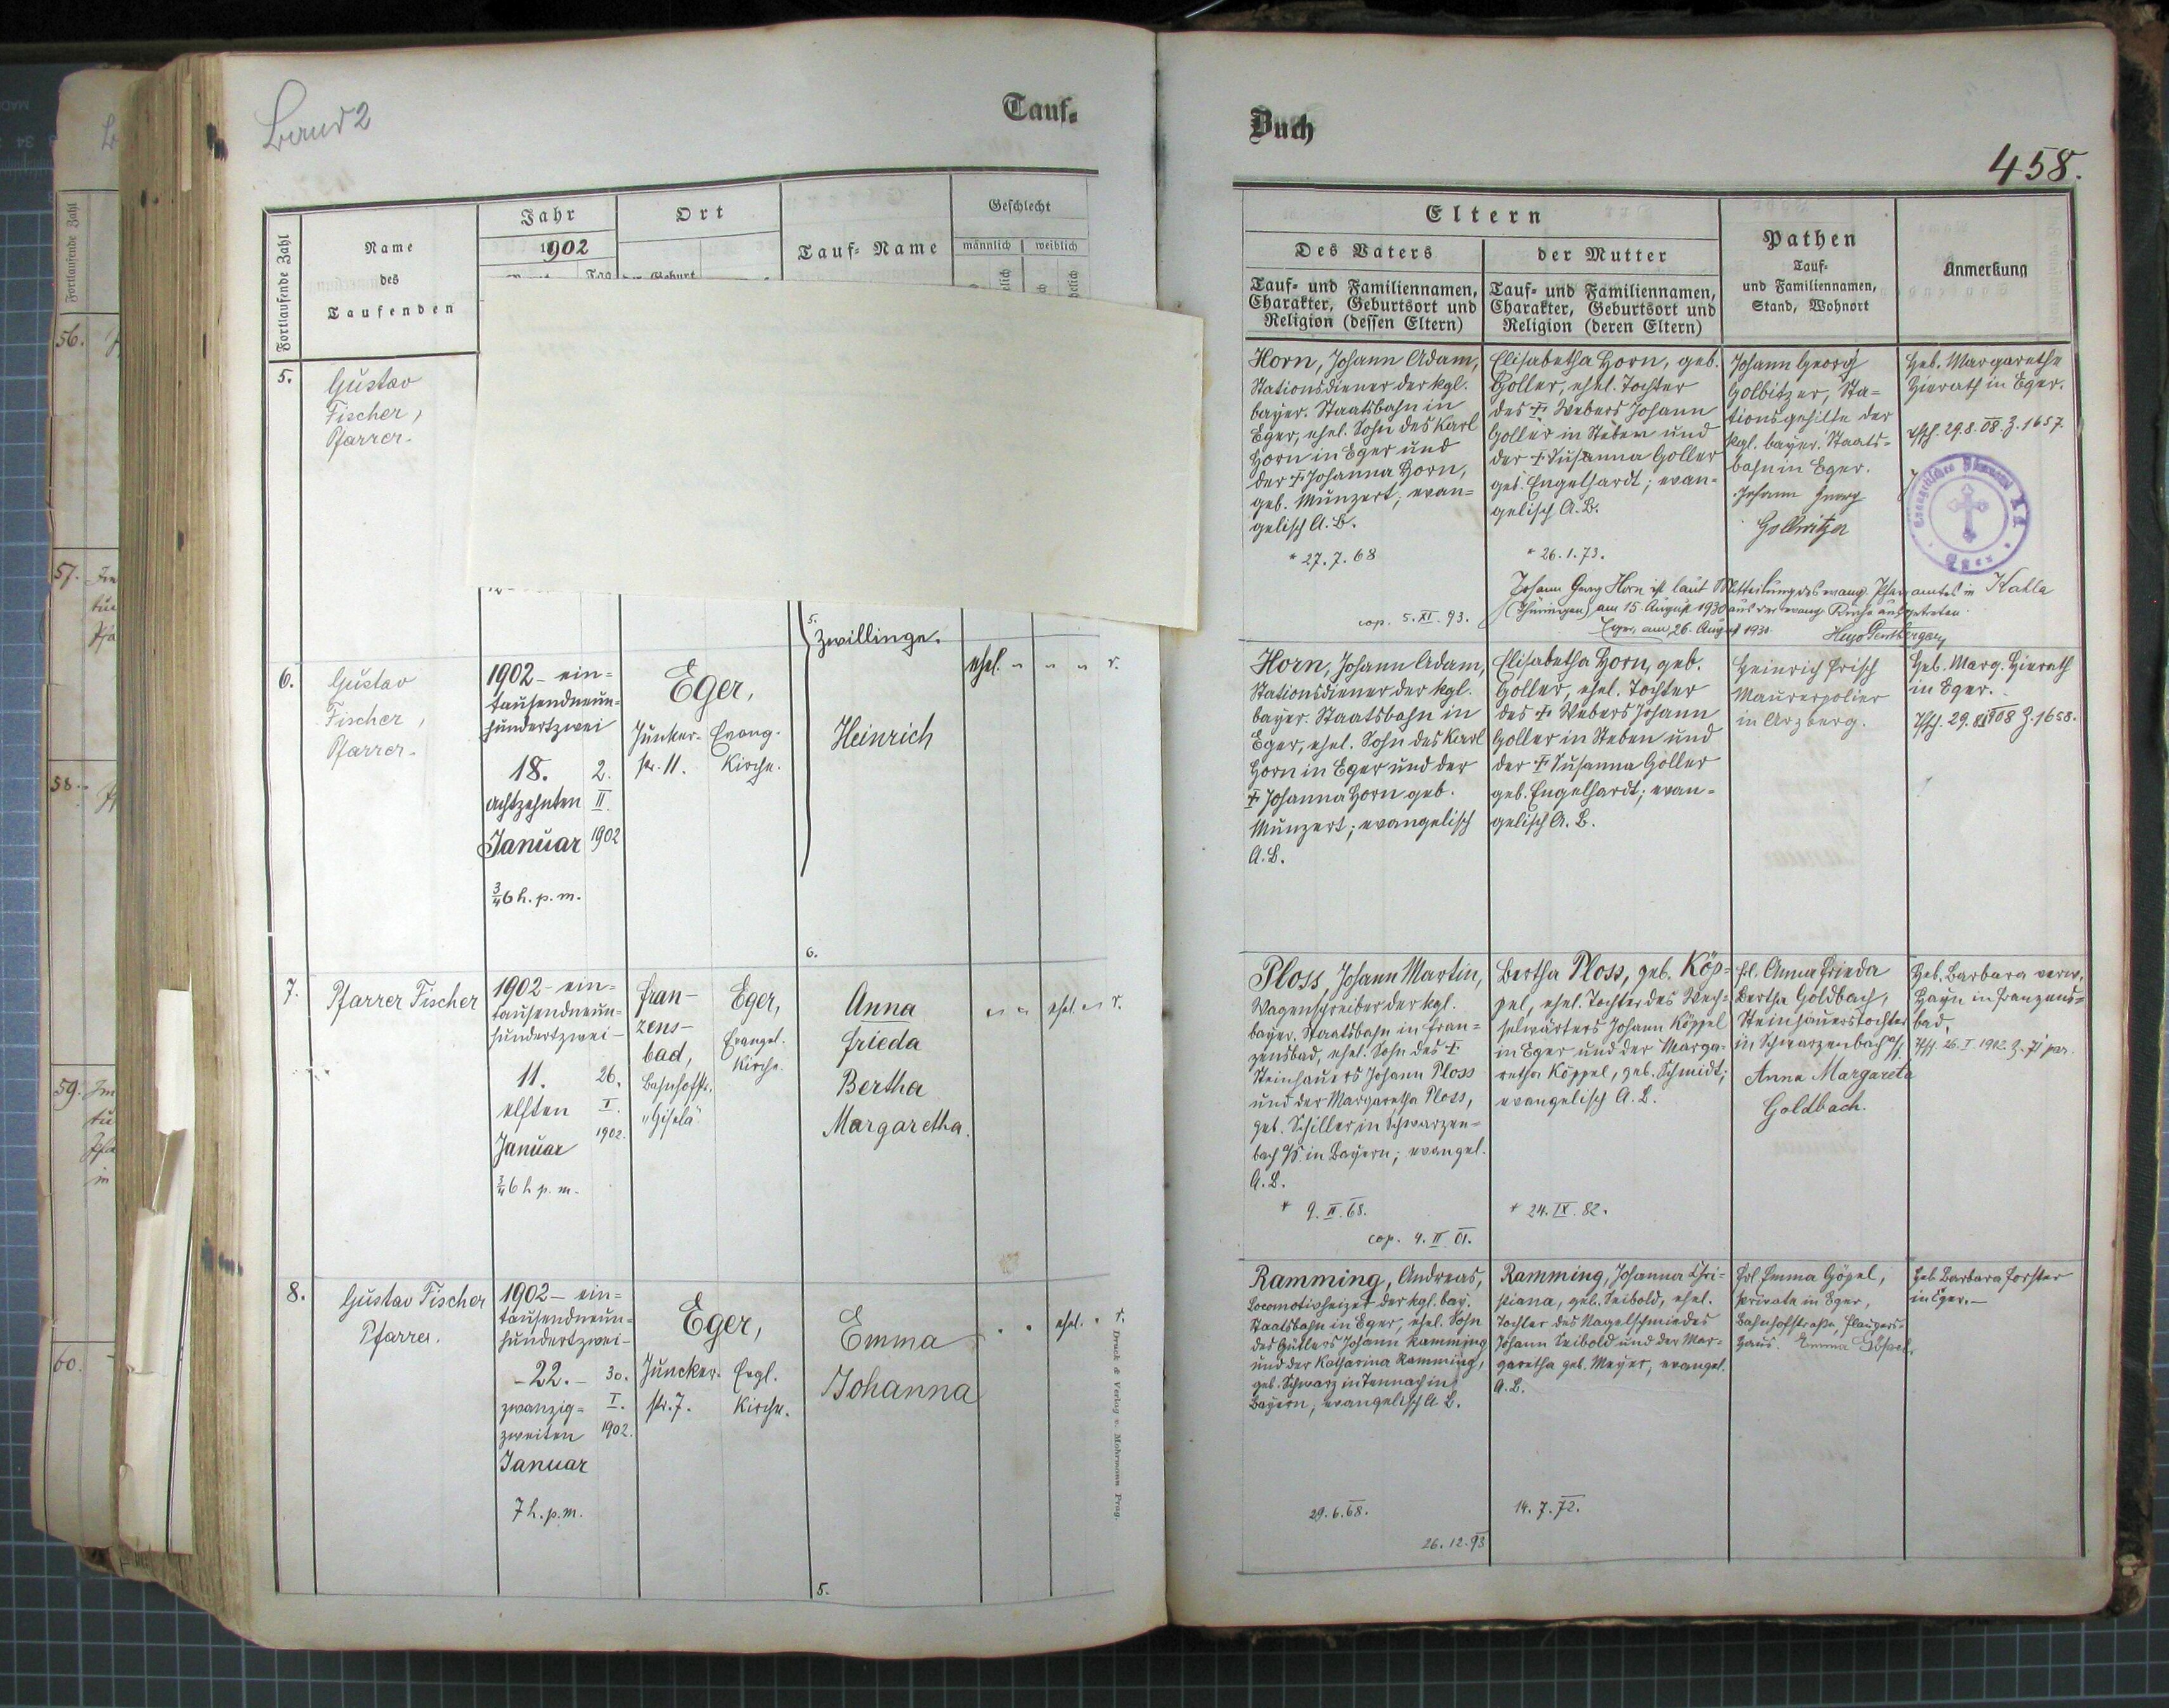 Band 2
Tauf-
Buch
458.
Fortlaufende Zahl
Name
des
Taufenden
Jahr
1902
Tag
Ort
der Geburt
Tauf-Name
Geschlecht
männlich
weiblich
Eltern
Des Vaters
Tauf- und Familiennamen,
Charakter, Geburtsort und
Religion (dessen Eltern)
der Mutter
Tauf- und Familiennamen,
Charakter, Geburtsort und
Religion (deren Eltern)
Pathen
Tauf-
und Familiennamen,
Stand, Wohnort
Anmerkung
5.
Gustav
Fischer,
Pfarrer.
5.
Zwillinge.
Horn, Johann Adam,
Stationsdiener der kgl.
bayer. Staatsbahn in
Eger, ehel. Sohn des Karl
Horn in Eger und
der † Johanna Horn,
geb. Münzert; evan-
gelisch A. B.
* 27. 7. 68
cop. 5. XI. 93.
Elisabetha Horn, geb.
Goller, ehel. Tochter
des † Webers Johann
Goller in Steben und
der † Susanna Goller
geb. Engelhardt; evan-
gelisch A. B.
* 26. 1. 73.
Johann Georg
Golbitzer, Sta-
tionsgehilfe der
kgl. bayer. Staats-
bahn in Eger.
Johann Georg
Gollwitzer
Heb. Margarethe
Hierath in Eger.
29. 8. 08. Z. 1657.
Evangelisches Pfarramt A. B.
Eger
Johann Georg Horn ist laut Mitteilung des evang. Pfarramtes in Kahla
(Thüringen) am 15. August 1930 aus der evang. Kirche ausgetreten.
Eger, am 26. August 1930.
6.
Gustav
Fischer,
Pfarrer.
1902 - ein-
tausendneun-
hundertzwei
18. 2.
achtzehnten II.
Januar 1902
¾6 h. p. m.
Eger,
Junker- Evang.
str. 11. Kirche.
Heinrich
ehel. " " " r.
6.
Horn, Johann Adam,
Stationsdiener der kgl.
bayer. Staatsbahn in
Eger, ehel. Sohn des Karl
Horn in Eger und der
† Johanna Horn geb.
Münzert; evangelisch
A. B.
Elisabetha Horn, geb.
Goller, ehel. Tochter
des † Webers Johann
Goller in Steben und
der † Susanna Goller
geb. Engelhardt; evan-
gelisch A. B.
Heinrich Frisch
Maurerpolier
in Arzberg.
Heb. Marg. Hierath
in Eger.
29. VIII 08 Z. 1658.
7.
Pfarrer Fischer
1902 - ein-
tausendneun-
hundertzwei -
11. 26.
elften I.
Januar 1902.
¾6 h. p. m.
Fran- Eger,
zens- Evangel.
bad, Kirche.
Bahnhofstr.
"Gisela"
Anna
Frieda
Bertha
Margaretha.
" " ehel. " r.
Ploss, Johann Martin,
Wagenschreiber der kgl.
bayer. Staatsbahn in Fran-
zensbad, ehel. Sohn des †
Steinhauers Johann Ploss
und der Margaretha Ploss,
geb. Schiller, in Schwarzen-
bach a/S. in Bayern; evangel.
A. B.
* 9. II. 68.
cop. 4. II. 01.
Bertha Ploss, geb. Köp-
pel, ehel. Tochter des Wech-
selwärters Johann Köppel
in Eger und der Marga-
retha Köppel, geb. Schmidt;
evangelisch A. B.
* 24. IX. 82.
Frl. Anna Frieda
Bertha Goldbach,
Steinhauerstochter
in Schwarzenbach a/S.
Anna Margareta
Goldbach.
Heb. Barbara verw.
Hayn in Franzens-
bad.
26. I. 1902.
8.
Gustav Fischer
Pfarrer.
1902 - ein-
tausendneun-
hundertzwei -
- 22. - 30.
zwanzig- I.
zweiten 1902.
Januar
7 h. p. m.
Eger,
Juncker- Evgl.
str. 7. Kirche.
Emma
Johanna
ehel.
5.
Druck & Verlag v. Mohrmann Prag.
Ramming, Andreas,
Locomotivheizer der kgl. bay.
Staatsbahn in Eger, ehel. Sohn
des Gütlers Johann Ramming
und der Katharina Ramming,
geb. Schwarz in Tennach in
Bayern, evangelisch A. B.
29. 6. 68.
26. 12. 93
Ramming, Johanna Chri-
stiana, geb. Seibold, ehel.
Tochter des Nagelschmiedes
Johann Seibold und der Mar-
garetha geb. Meyer, evangel.
A. B.
14. 7. 72.
Frl. Emma Göpel,
Private in Eger,
Bahnhofstraße,
Haus. Emma Göpel.
Heb. Barbara Forster
in Eger. -
56.
57.
58.
59.
60.